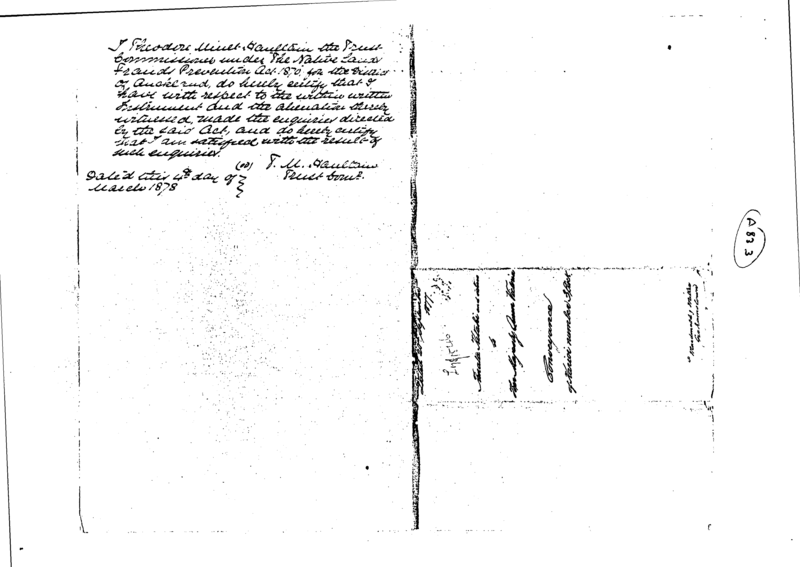 I Theodore Minet Haultain the Trust
Commissioner under The Native Lands
Frauds Prevention Act 1870, for the District
of Auckland, do hereby certify that I
have with respect to the within written
Instrument and the alienation thereby
witnessed, made the enquiries directed
by the said Act, and do hereby certify
that I am satisfied with the result of
such enquiries.
(sd) T. M. Haultain
Trust Comr.
Dated this 4th day of
March 1878
A 82 3
to
Her Majesty Queen Victoria
Conveyance